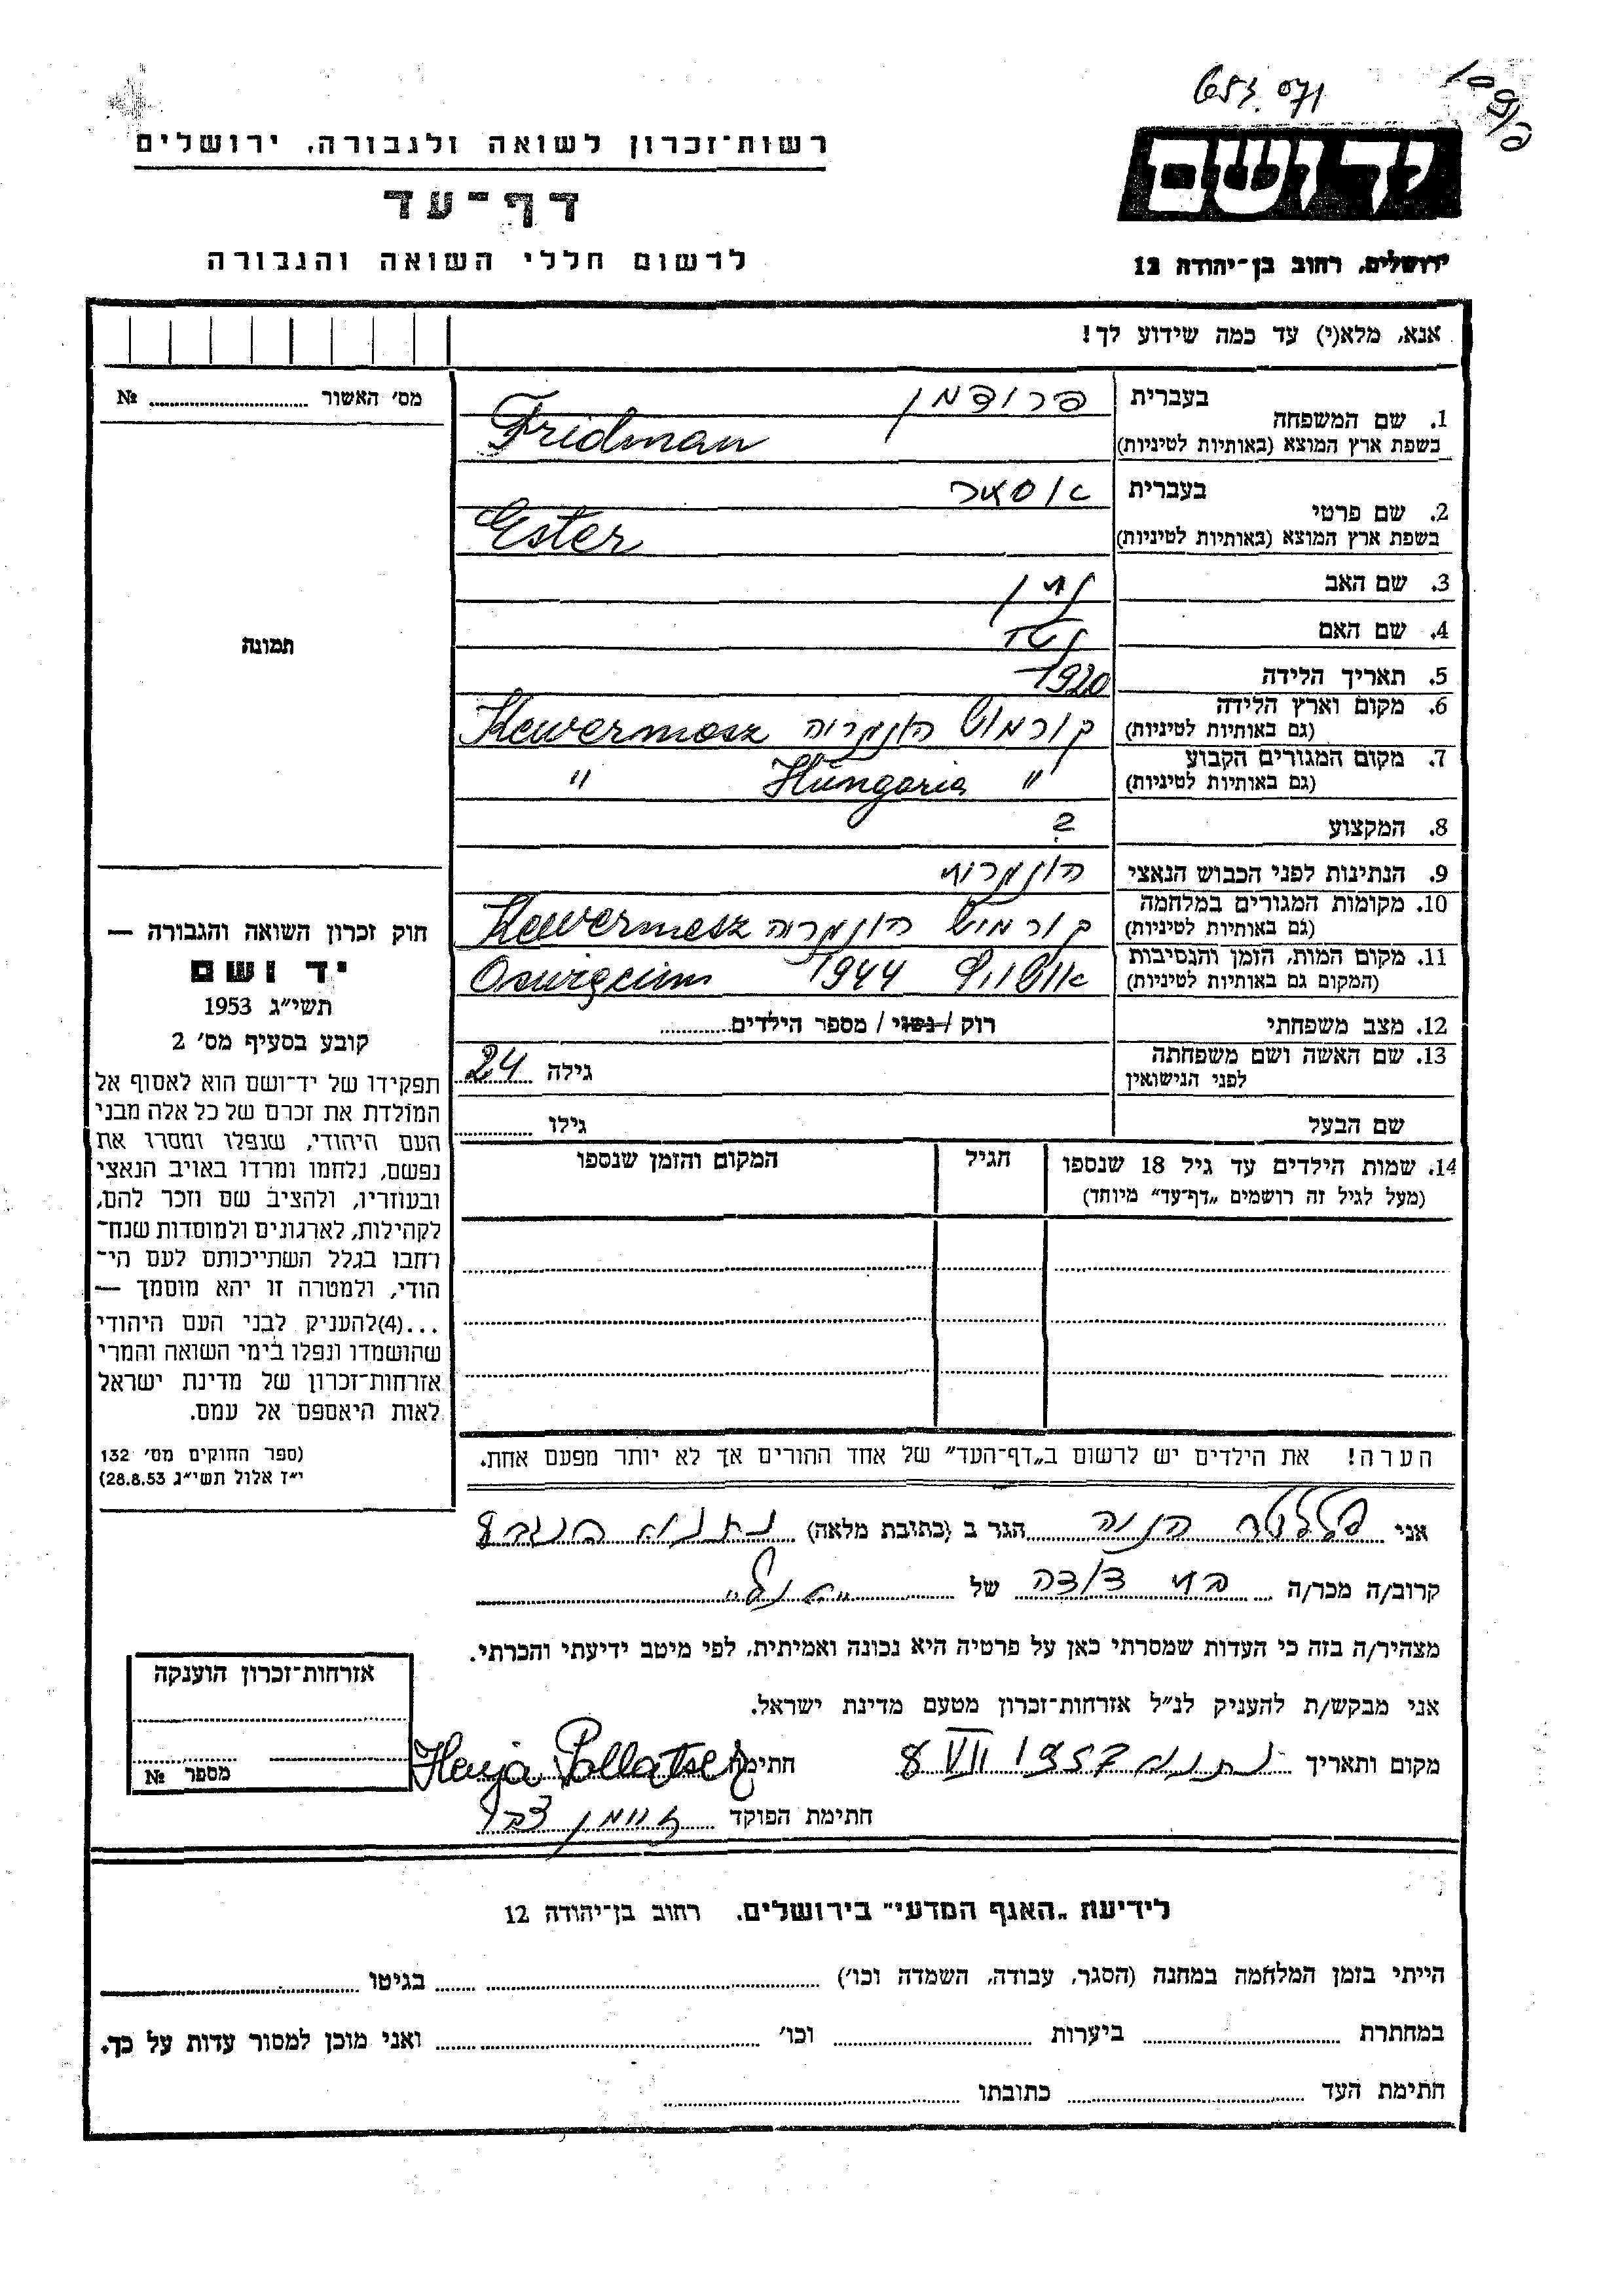 653071
יד ושם
ירושלים, רחוב בן-יהודה 12
רשות-זכרון לשואה ולגבורה, ירושלים
דף-עד
לרשום חללי השואה והגבורה
אנא, מלא(י) עד כמה שידוע לך!
מס׳ האשור № 
תמונה
1. שם המשפחה
בעברית פרידמן
בשפת ארץ המוצא (באותיות לטיניות) Fridman
2. שם פרטי
בעברית אסתר
בשפת ארץ המוצא (באותיות לטיניות) Ester
3. שם האב
4. שם האם
5. תאריך הלידה 1920
6. מקום וארץ הלידה הונגריה Kewermesz
(גם באותיות לטיניות)
7. מקום המגורים הקבוע " Hungaria "
(גם באותיות לטיניות)
8. המקצוע ?
9. הנתינות לפני הכבוש הנאצי הונגרית
10. מקומות המגורים במלחמה הונגריה Kewermesz
(גם באותיות לטיניות)
11. מקום המות, הזמן והנסיבות 1944 Oswięcim
(המקום גם באותיות לטיניות)
12. מצב משפחתי רוק / נשוי / מספר הילדים
13. שם האשה ושם משפחתה
לפני הנישואין
גילה 24
שם הבעל גילו
14. שמות הילדים עד גיל 18 שנספו הגיל המקום והזמן שנספו
(מעל לגיל זה רושמים „דף-עד” מיוחד)
הערה! את הילדים יש לרשום ב„דף-העד” של אחד ההורים אך לא יותר מפעם אחת.
חוק זכרון השואה והגבורה —
יד ושם
תשי״ג 1953
קובע בסעיף מס׳ 2
תפקידו של יד-ושם הוא לאסוף אל
המולדת את זכרם של כל אלה מבני
העם היהודי, שנפלו ומסרו את
נפשם, נלחמו ומרדו באויב הנאצי
ובעוזריו, ולהציב שם וזכר להם,
לקהילות, לארגונים ולמוסדות שנח-
רחבו בגלל השתייכותם לעם הי-
הודי, ולמטרה זו יהא מוסמך —
...(4)להעניק לבני העם היהודי
שהושמדו ונפלו בימי השואה והמרי
אזרחות-זכרון של מדינת ישראל
לאות היאספם אל עמם.
(ספר החוקים מס׳ 132
י״ז אלול תשי״ג 28.8.53)
אני חנה הגר ב (כתובת מלאה) נתניה
קרוב/ה מכר/ה בת דודה של
מצהיר/ה בזה כי העדות שמסרתי כאן על פרטיה היא נכונה ואמיתית, לפי מיטב ידיעתי והכרתי.
אני מבקש/ת להעניק לנ״ל אזרחות-זכרון מטעם מדינת ישראל.
מקום ותאריך נתניה 8 VII 1957 חתימה Hanja Pollatsek
חתימת הפוקד
אזרחות-זכרון הוענקה
מספר №
לידיעת „האגף המדעי” בירושלים, רחוב בן-יהודה 12
הייתי בזמן המלחמה במחנה (הסגר, עבודה, השמדה וכו׳) בגיטו
במחתרת ביערות וכו׳ ואני מוכן למסור עדות על כך.
חתימת העד כתובתו